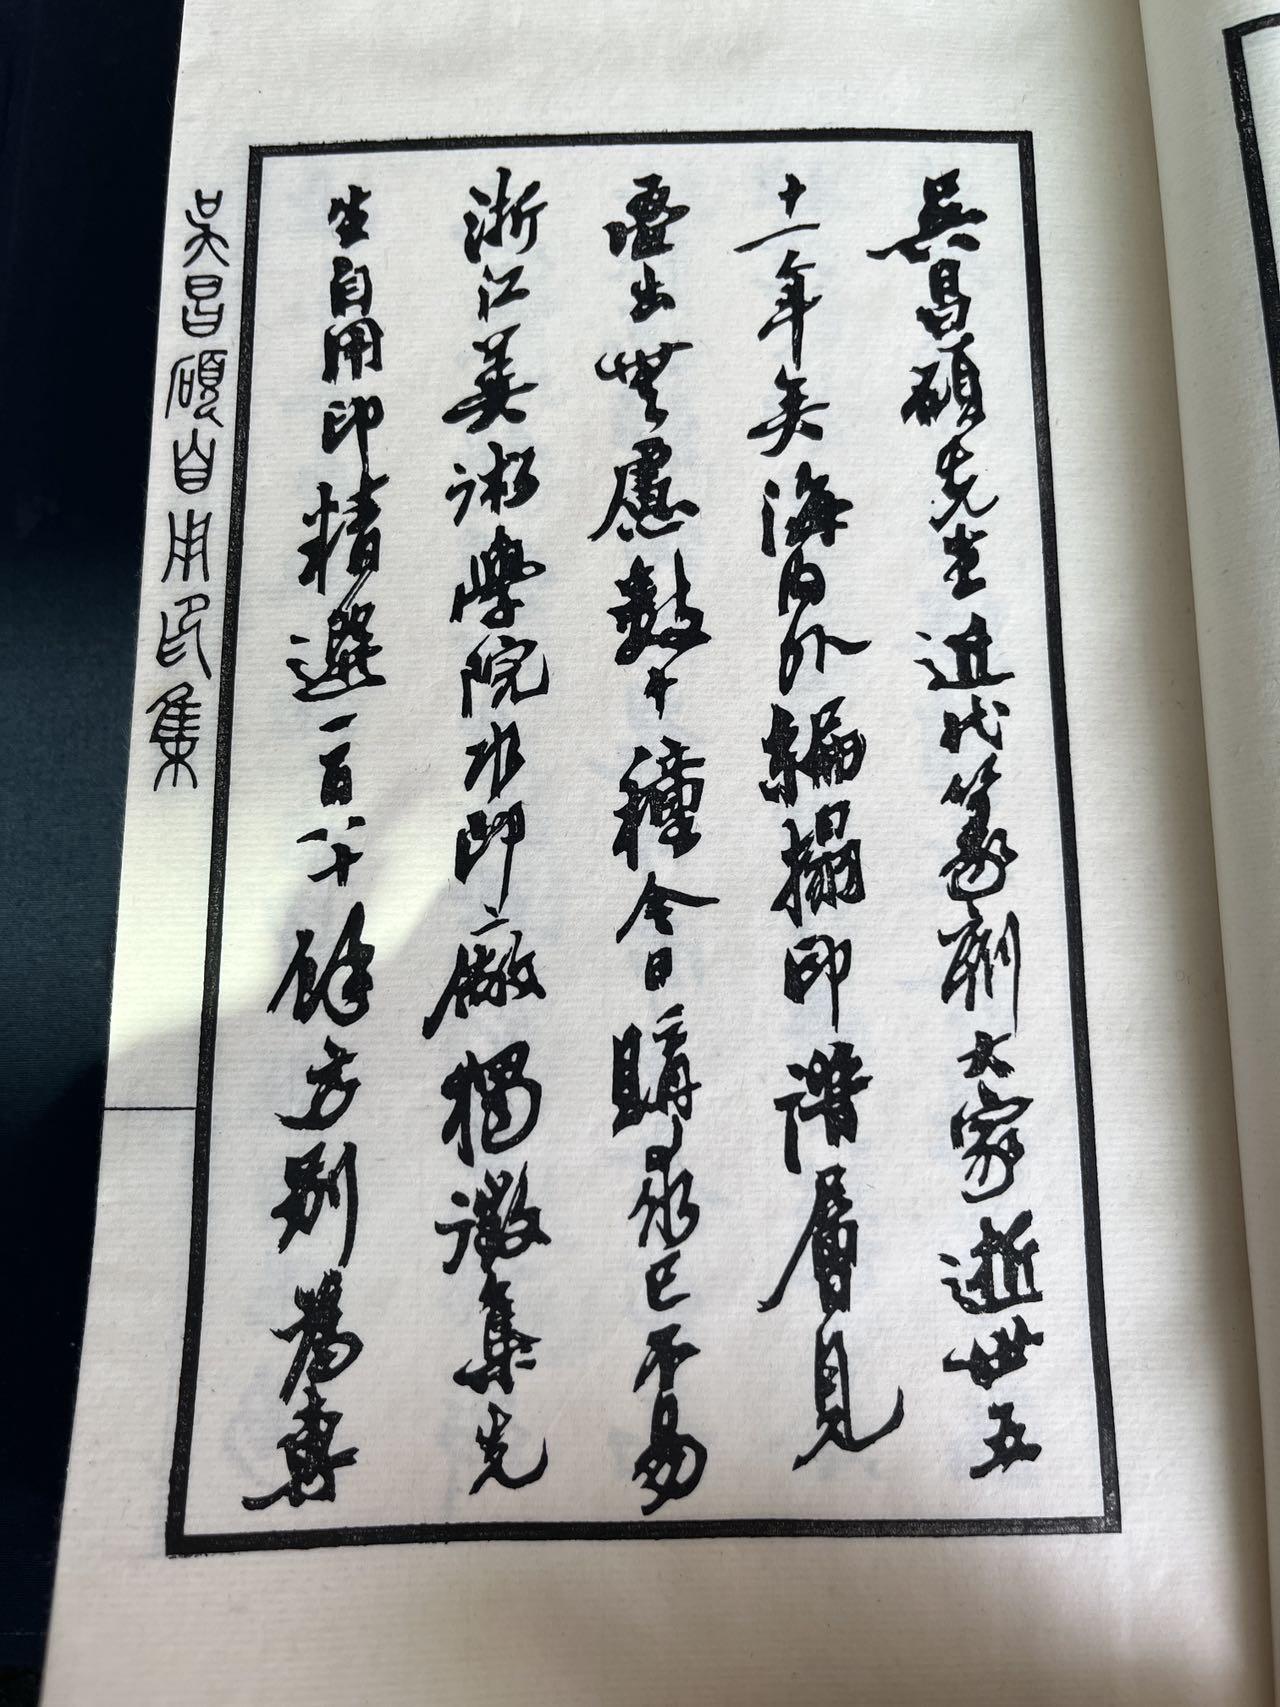 吴昌碩先生近代篆刻大家逝世五
十一年矣海内外編搨印譜層見
疊出無慮數十種今日購求已不易
浙江美術學院水印廠獨徵集先
生自用印精選一百八十餘方別為專
吴昌碩自用印集